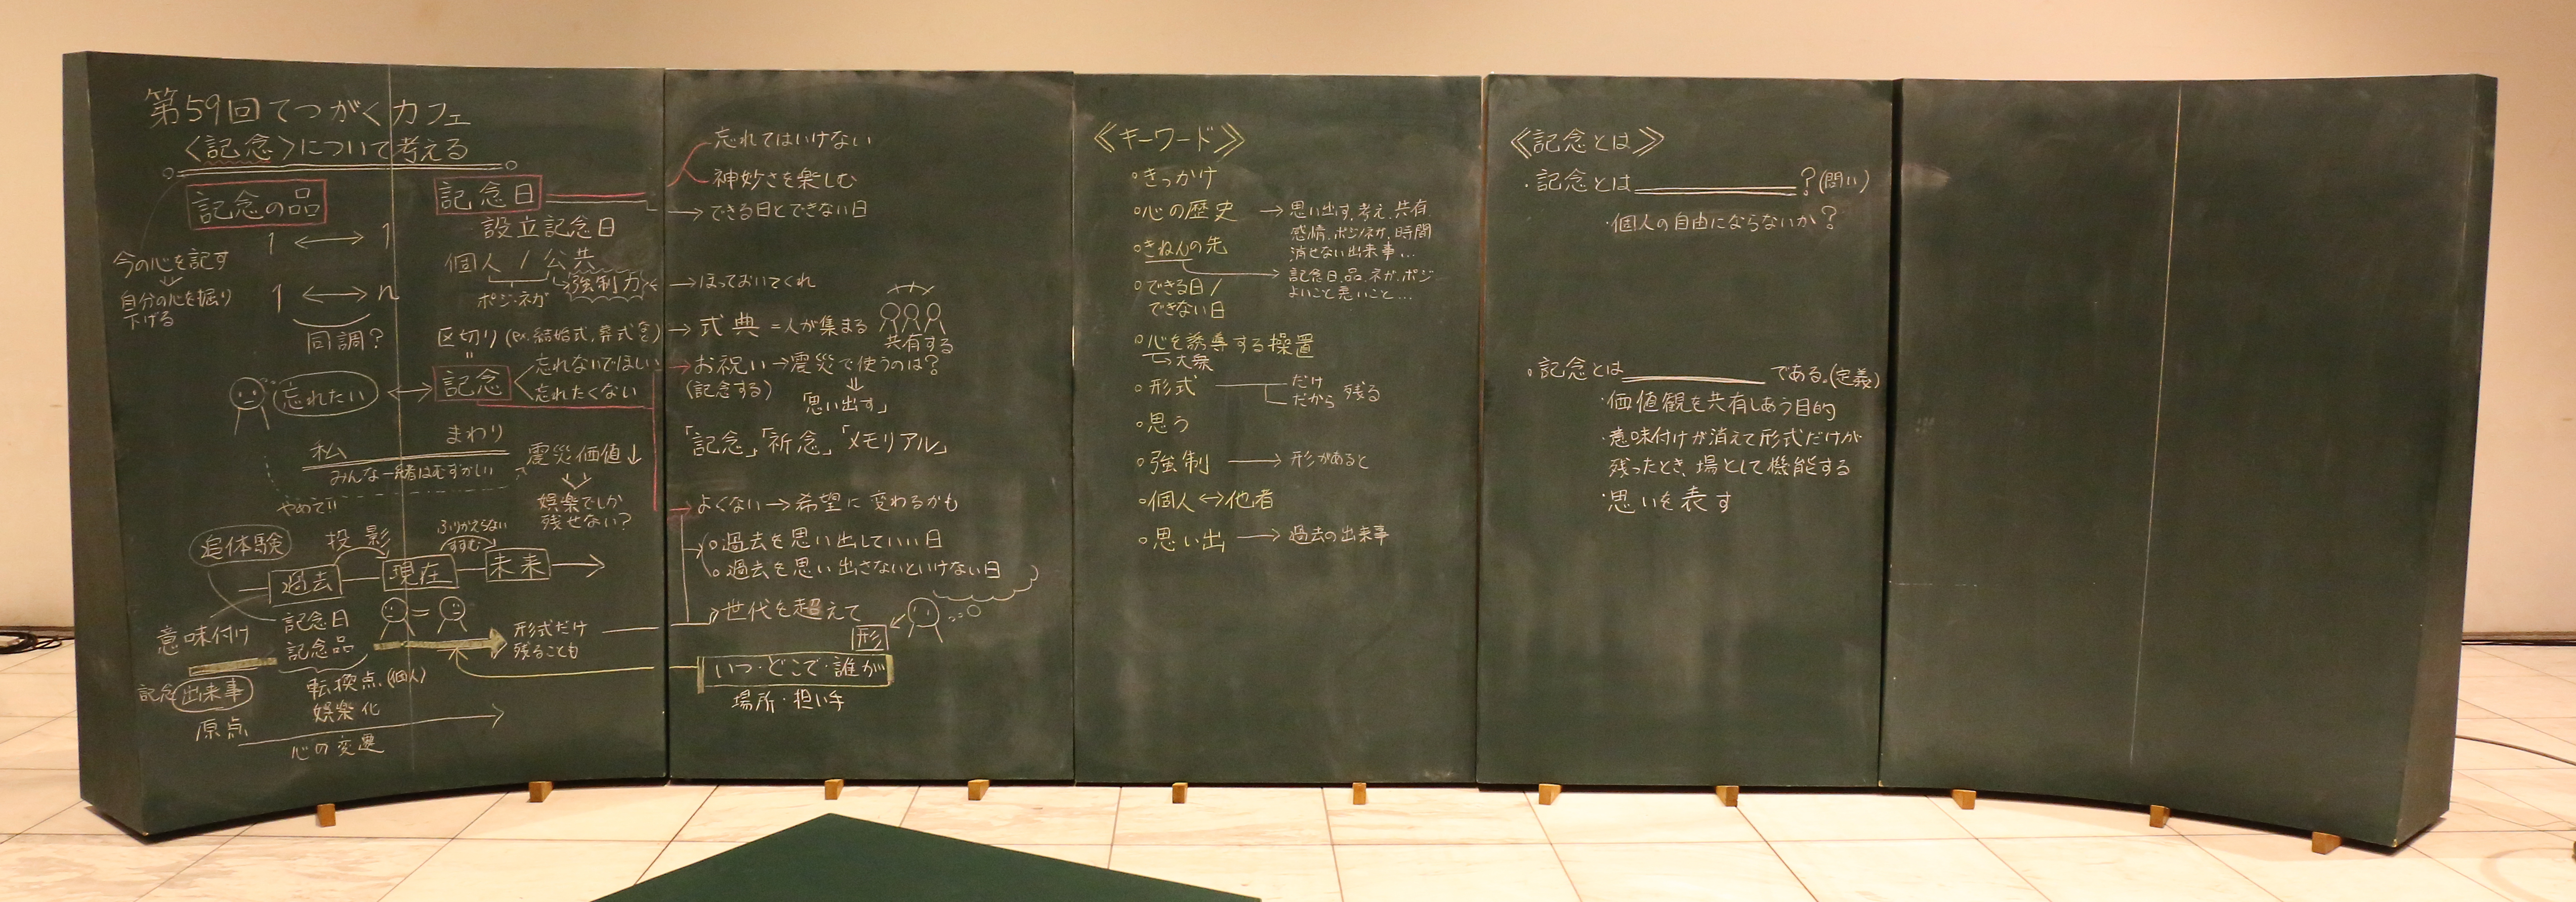 第59回てつがくカフェ
〈記念〉について考える
記念の品
1 ↔ 1
今の心を記す
↓
自分の心を掘り
下げる
1 ↔ n
同調?
記念日
設立記念日
個人 / 公共
ポジ・ネガ
強制力
区切り (ex. 結婚式, 葬式 など)
〃
記念
忘れないでほしい
忘れたくない
忘れたい
私
まわり
みんな一緒はむずかしい
やめて!!
震災価値↓
娯楽でしか
残せない?
追体験
投影
ふりかえらない
すすむ
過去
現在
未来
意味付け
記念日
記念品
=
形式だけ
残ることも
記念出来事
転換点(個人)
娯楽化
原点
心の変遷
忘れてはいけない
神妙さを楽しむ
→できる日とできない日
→ほっておいてくれ
→式典=人が集まる
共有する
→お祝い→震災で使うのは?
(記念する)
「思い出す」
「記念」「祈念」「メモリアル」
よくない→希望に変わるかも
○過去を思い出していい日
○過去を思い出さないといけない日
世代を超えて
形
いつ・どこで・誰が
場所・担い手
《キーワード》
○きっかけ
○心の歴史 → 思い出す, 考え, 共有,
感情, ポジ/ネガ, 時間
消せない出来事…
○きねんの先
→ 記念日, 品, ネガ, ポジ
よいこと 悪いこと…
○できる日/
できない日
○心を誘導する操置
↳大衆
○形式
だけ
だから
残る
○思う
○強制 → 形があると
○個人↔他者
○思い出 → 過去の出来事
《記念とは》
・記念とは＿＿＿＿＿?(問い)
・個人の自由にならないか?
・記念とは＿＿＿＿＿である。(定義)
・価値観を共有しあう目的
・意味付けが消えて形式だけが
残ったとき、場として機能する
・思いを表す